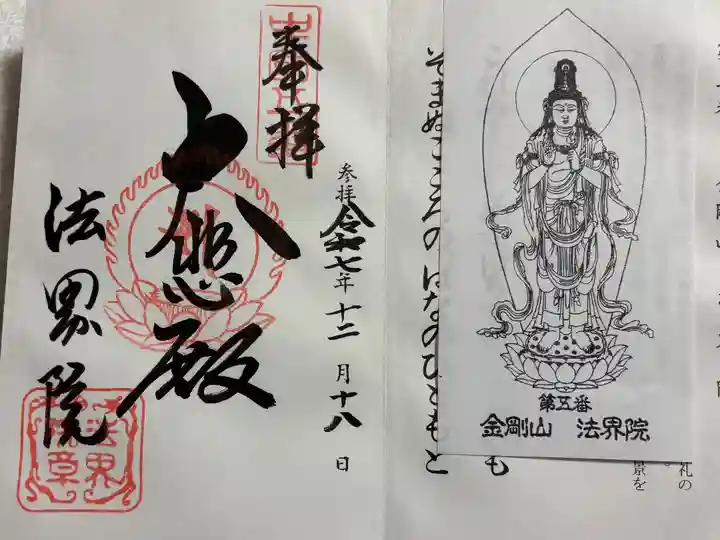 奉拝
参拝 令和七年十二月十八日
大悲殿
法界院
法界院章
そまぬこころの はなのひともと
も
第五番
金剛山 法界院
礼の
景を